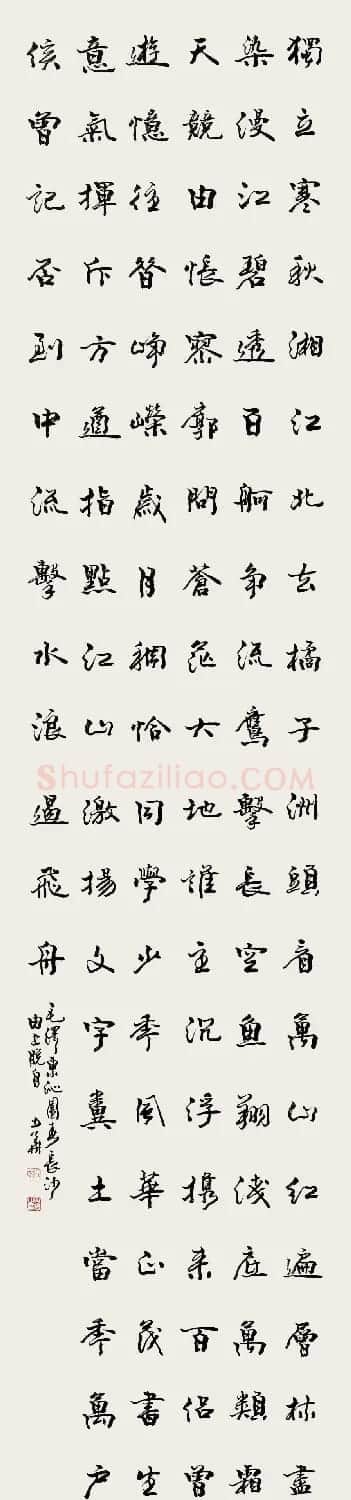 獨立寒秋湘江北去橘子洲頭看萬山紅遍層林盡
染漫江碧透百舸争流鷹擊長空魚翔淺底萬類霜
天競由悵寥廓問蒼茫大地誰主沉浮携来百侣曾
遊憶往昔崢嶸歲月稠恰同學少年風華正茂書生
意氣揮斥方遒指點江山激揚文字糞土當年萬户
侯曾記否到中流擊水浪遏飛舟
毛澤東沁園春長沙
由上脱自
Shufaziliao.COM